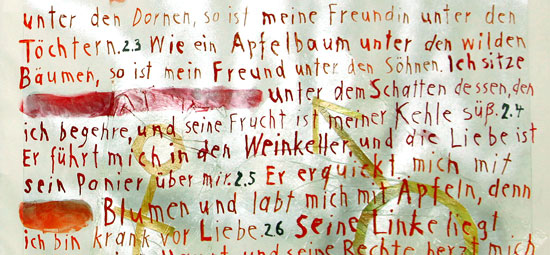 unter den Dornen, so ist meine Freundin unter den
Töchtern. 2.3 Wie ein Apfelbaum unter den wilden
Bäumen, so ist mein Freund unter den Söhnen. Ich sitze
unter dem Schatten dessen, den
ich begehre, und seine Frucht ist meiner Kehle süß. 2.4
Er führt mich in den Weinkeller, und die Liebe ist
sein Panier über mir. 2.5 Er erquickt mich mit
Blumen und labt mich mit Äpfeln, denn
ich bin krank vor Liebe. 2.6 Seine Linke liegt
und seine Rechte herzt mich